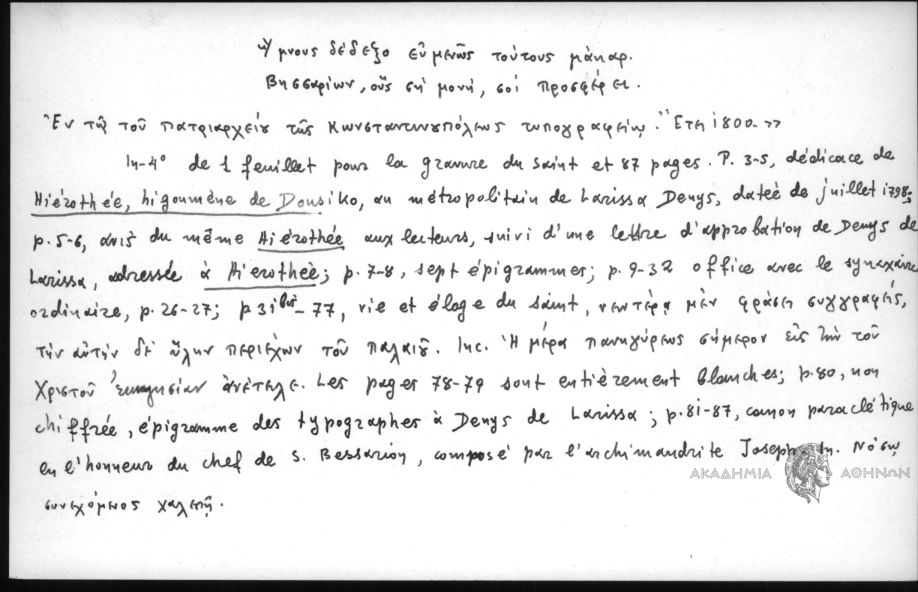 Ὕμνους δέδεξο εὐμενῶς τούτους μάκαρ.
Βησσαρίων, οὓς σὴ μονή, σοὶ προσφέρει.
Ἐν τῷ τοῦ πατριαρχείου τῆς Κωνσταντινουπόλεως τυπογραφείῳ. Ἔτει 1800.»
In-4° de 1 feuillet pour la gravure du saint et 87 pages. P. 3-5, dédicace de
Hiérothée, higoumène de Dousiko, au métropolitain de Larissa Denys, dateé de juillet 1798,
p. 5-6, avis du même Hiérothée aux lecteurs, suivi d'une lettre d'approbation de Denys de
Larissa, adressée à Hierothée; p. 7-8, sept épigrammes; p. 9-32 office avec le synaxaire
ordinaire, p. 26-27; p 31bis-77, vie et éloge du saint, νεωτέρᾳ μὲν φράσει συγγραφείς,
τὴν αὐτὴν δὲ ὕλην περιέχων τοῦ παλαιοῦ. Inc. Ἡμέρα πανηγύρεως σήμερον εἰς τὴν τοῦ
Χριστοῦ ἐκκλησίαν ἀνέτειλε. Les pages 78-79 sont entièrement blanches; p. 80, non
chiffrée, épigramme des typographes à Denys de Larissa; p. 81-87, canon paraclétique
en l'honneur du chef de S. Bessarion, composé par l'archimandrite Joseph. In. Νόσῳ
συνεχόμενος χαλεπῇ.
ΑΚΑΔΗΜΙΑ ΑΘΗΝΩΝ